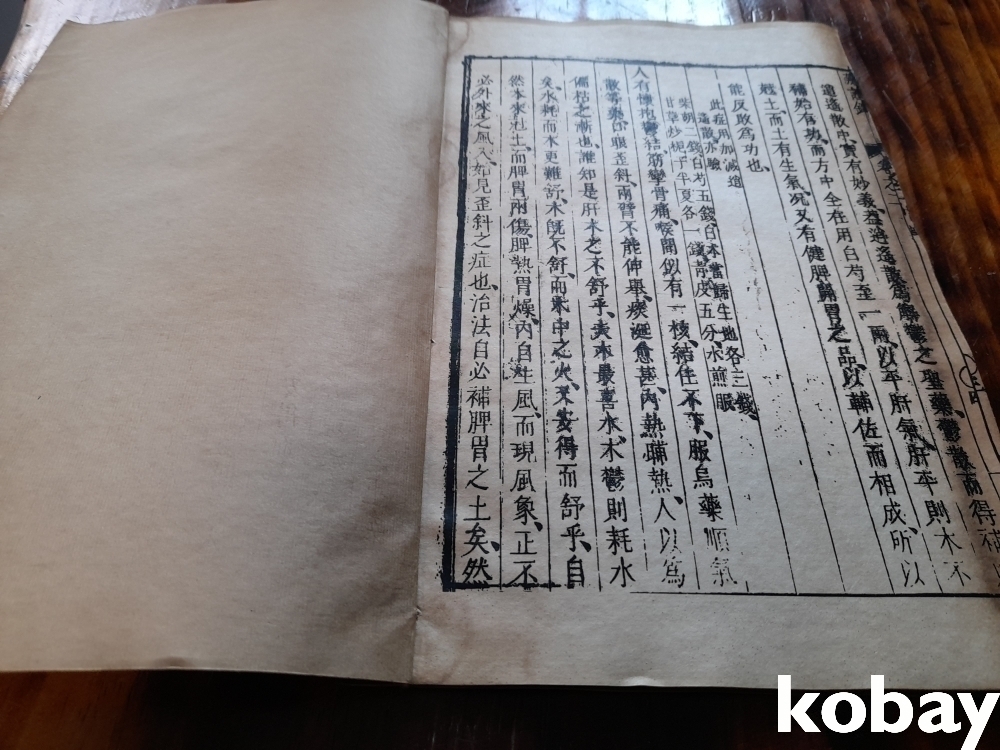 逍遙散中實有妙義、蓋逍遙散為解鬱之聖藥、鬱散而得補
補始有效、而方中全在用白芍至一兩、以平肝氣、肝平則木不
尅土、而土有生氣、況又有健脾開胃之品、以輔佐而相成、所以
能反敗為功也、
此症用加減逍
遙散亦驗
柴胡二錢白芍五錢白术當歸生地各三錢、
甘草炒梔子半夏各一錢青皮五分水煎服
人有懷抱鬱結、筋攣骨痛、喉間似有一核、結住不下、服烏藥順氣
散等藥、口眼歪斜、兩臂不能伸舉、痰涎愈甚、內熱晡熱、人以為
偏枯之漸也、誰知是肝木之不舒乎、夫木最喜水、木鬱則耗水
矣、水耗而木更難舒、木既不舒、而木中之火、又安得而舒乎、自
然木來尅土、而脾胃兩傷、脾熱胃燥、內自生風、而現風象、正不
必外來之風入、如見歪斜之症也、治法自必補脾胃之土矣、然
kobay